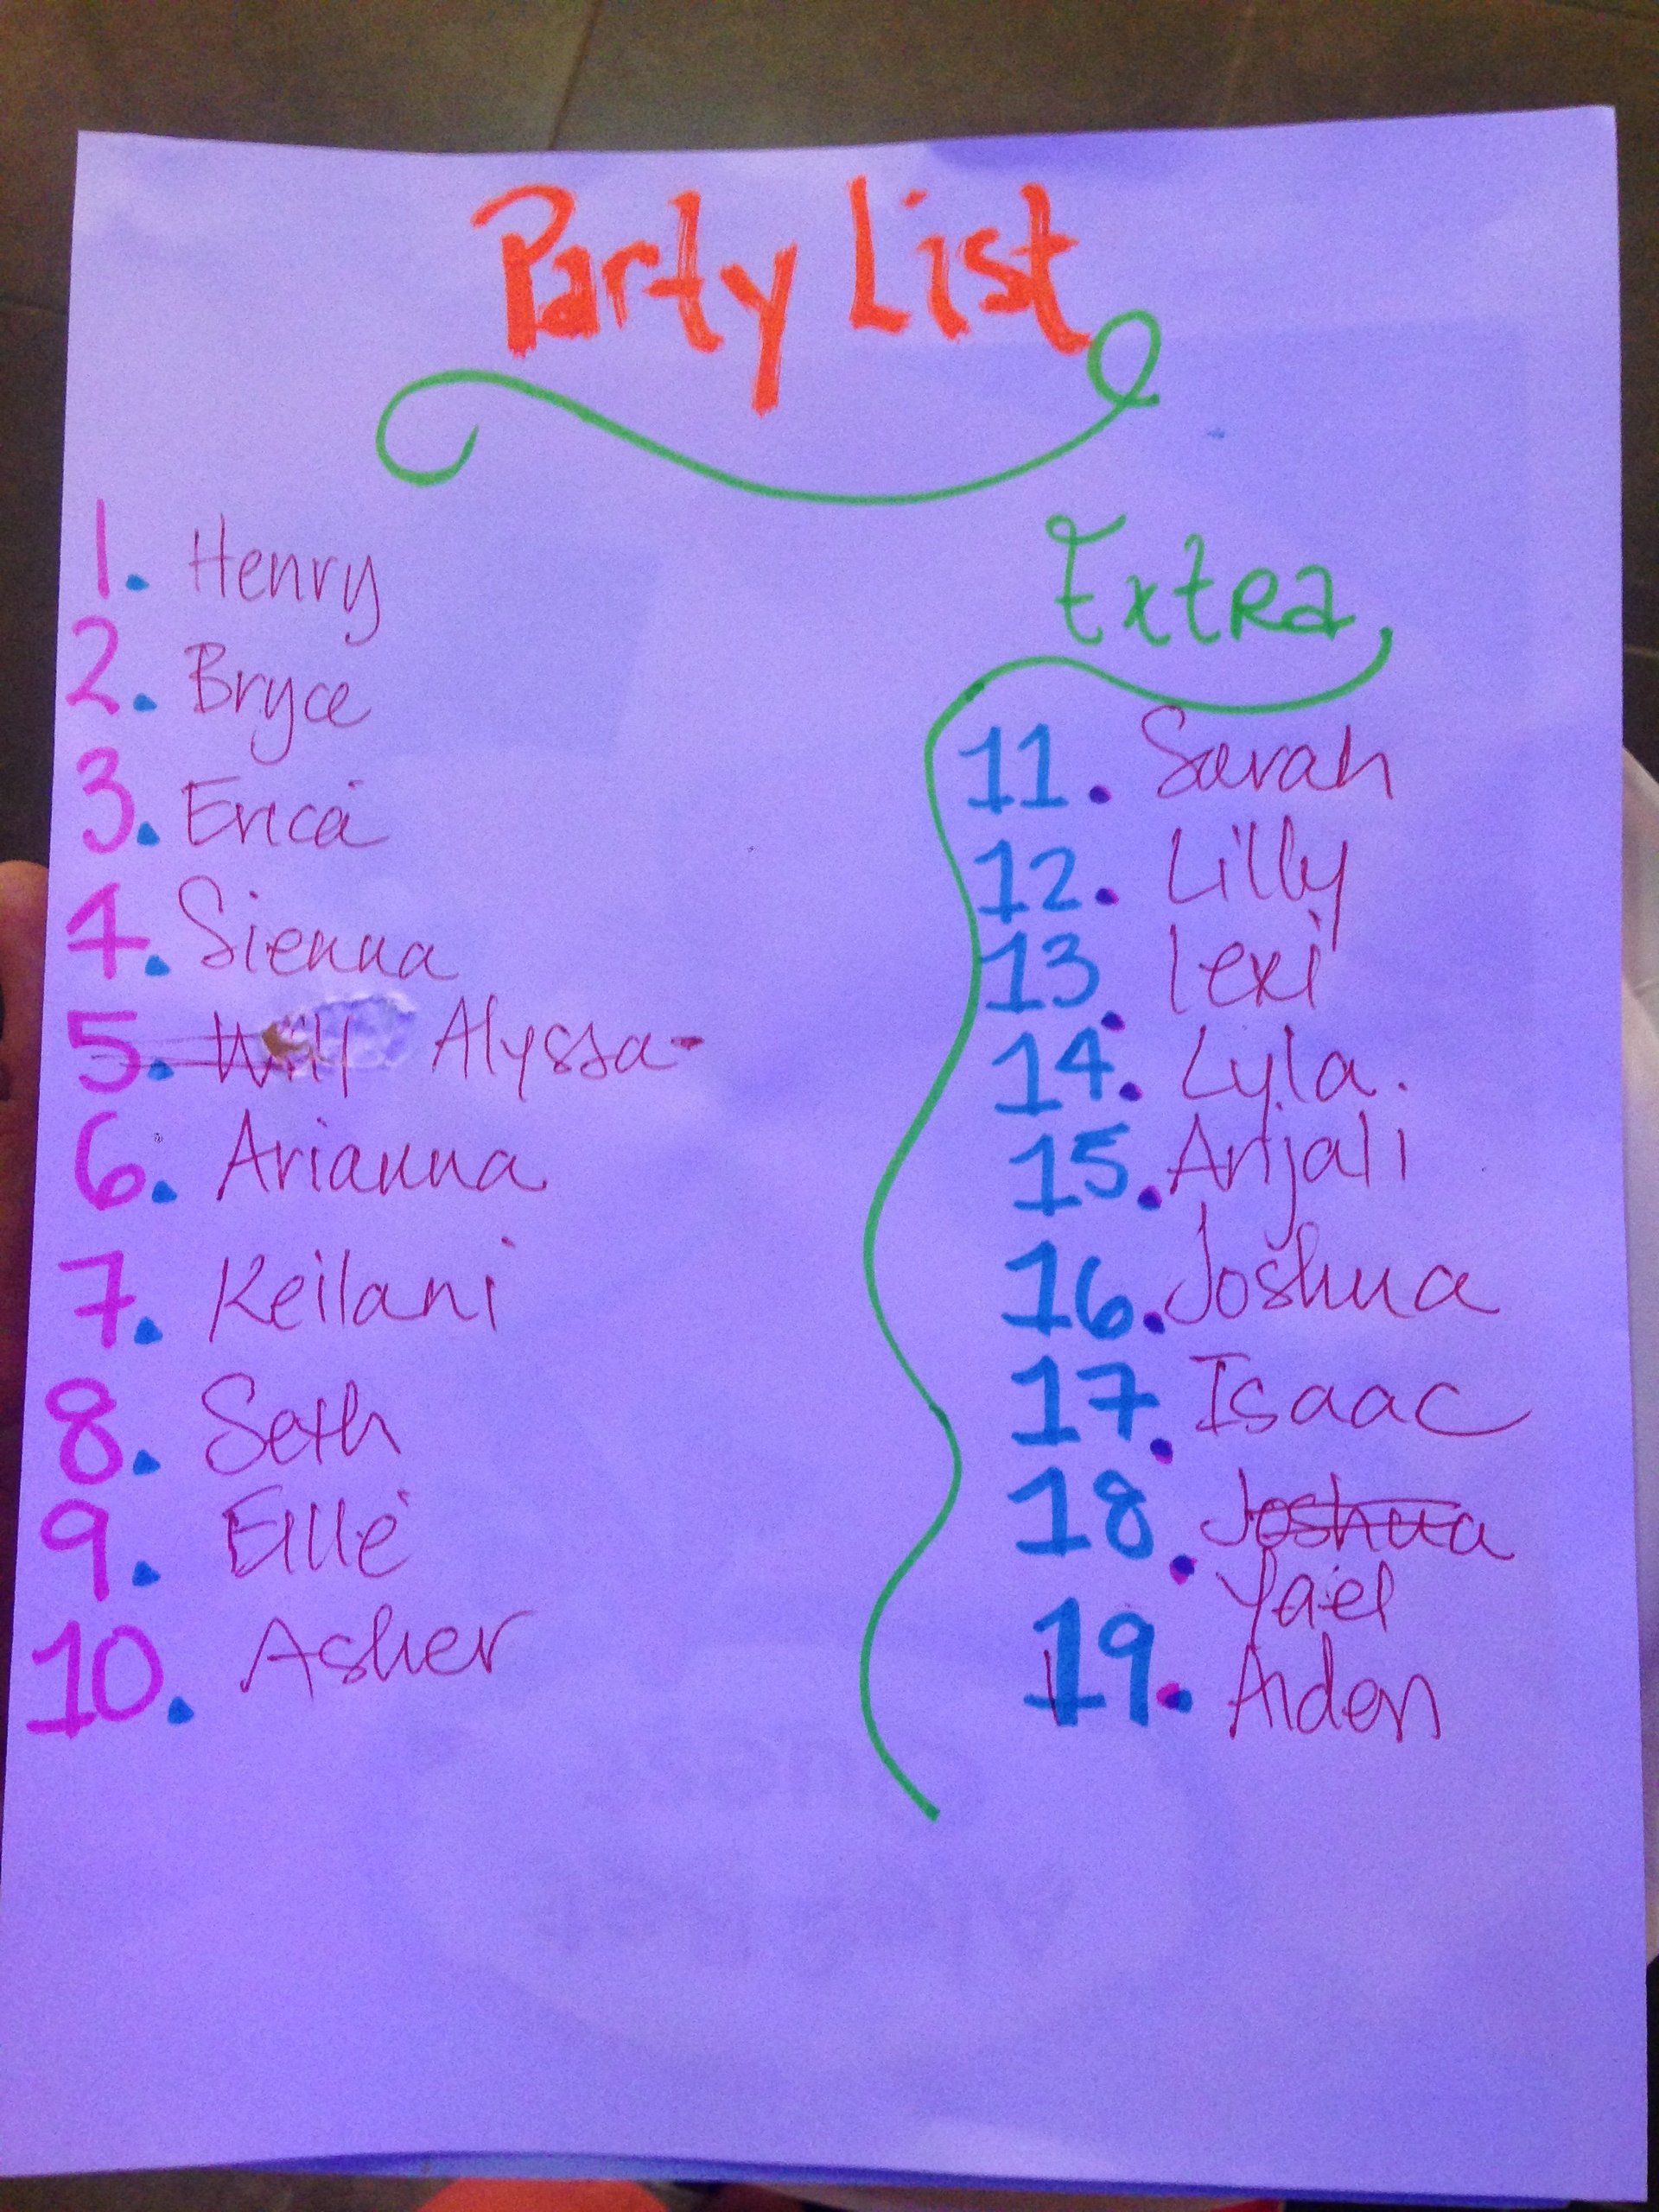 Party List
1. Henry
2. Bryce
3. Erica
4. Sienna
5. Will Alyssa-
6. Arianna
7. Keilani
8. Seth
9. Elle
10. Asher
Extra
11. Sarah
12. Lilly
13. Lexi
14. Lyla.
15. Anjali
16. Joshua
17. Isaac
18. Joshua
Yael
19. Aiden